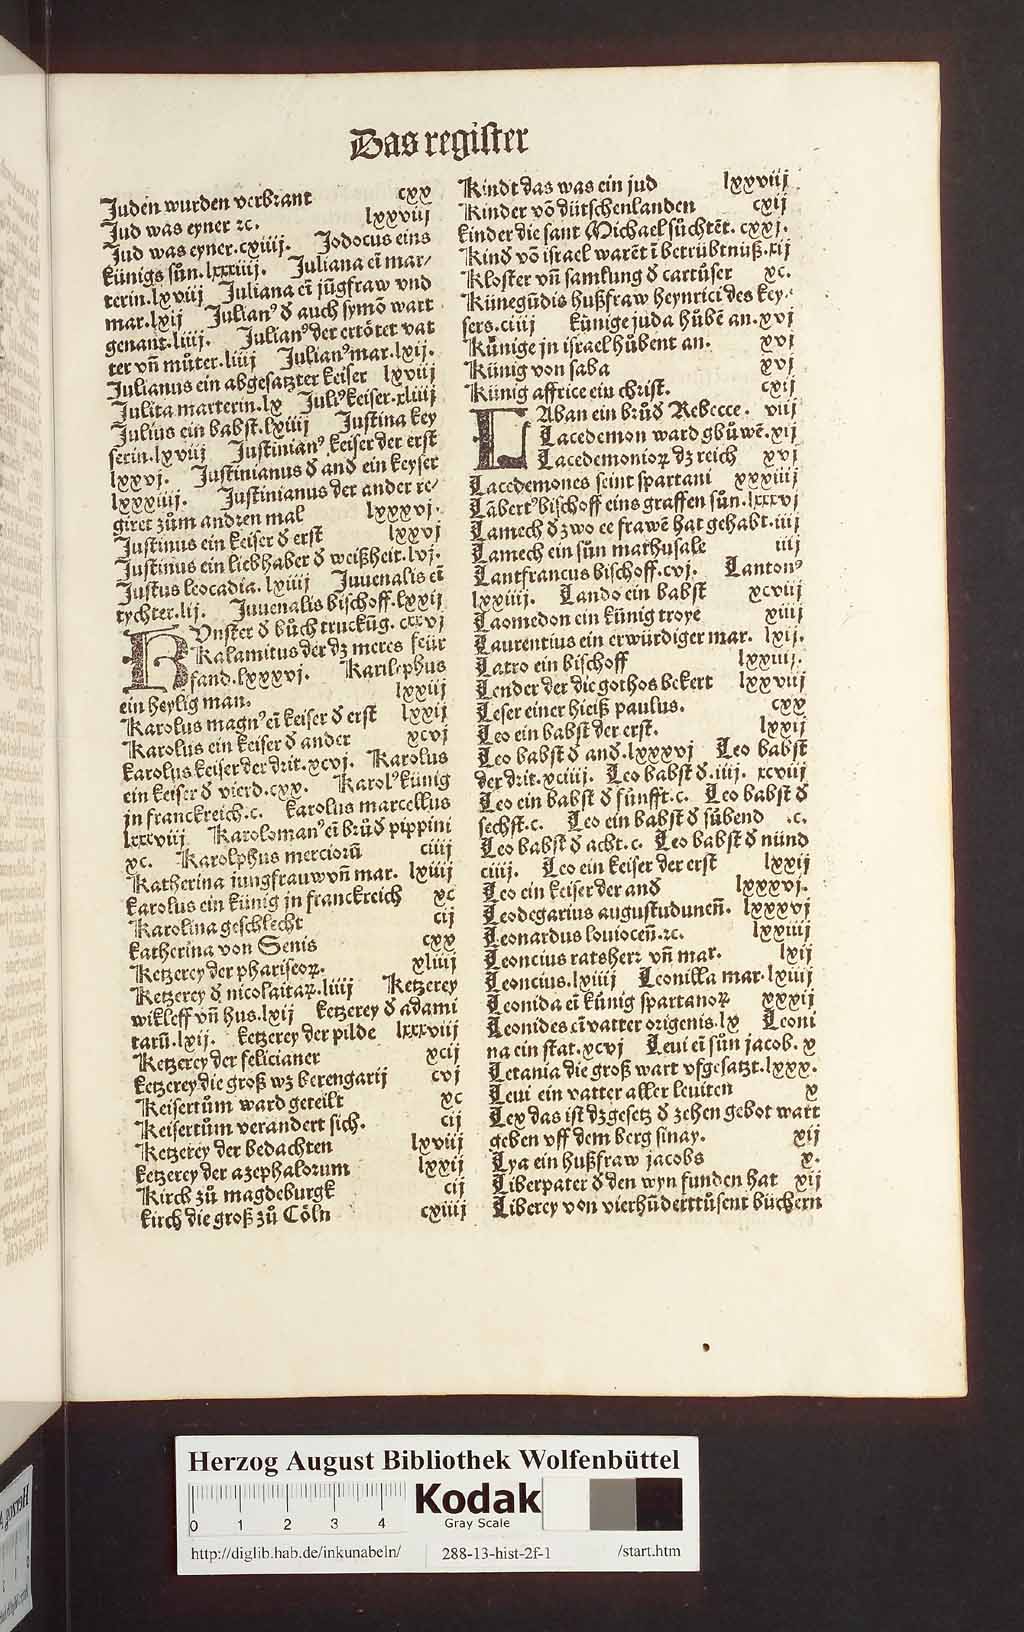 Das register
Juden wurden verbrant cxx
Jud was eyner ꝛc. lxxviij
Jud was eyner.cxiiij. Jodocus eins
künigs sůn.lxxxiiij. Juliana eī mar/
terin.lxviij Juliana eī jūgfraw vnd
mar.lxij Julianꝰ ď auch symō wart
genant.liiij. Julianꝰ der ertötet vat
ter vn̄ můter.liiij Julianꝰ mar.lxij.
Julianus ein abgesatzter keiser lxviij
Julita marterin.lx Juliꝰ keiser.xliiij
Julius ein babst.lxiiij Justina key
serin.lxviij Justinianꝰ keiser der erst
lxxvj. Justinianus ď and ein keyser
lxxxiiij. Justinianus der ander re/
giret zům andren mal lxxxvj.
Justinus ein keiser ď erst lxxvj
Justinus ein liebhaber ď weißheit.lvj.
Justus leocadia. lxiiij Juuenalis eī
tychter.lij. Juuenalis bischoff.lxxij
KUnster ď bůch truckūg. cxxvj
Kalamitus der dz meres feür
fand.lxxxvj. Karilephus
ein heylig man. lxxiij
Karolus magnꝰ eī keiser ď erst lxxij
Karolus ein keiser ď ander xcvj
karolus keiser der drit.xcvj. Karolus
ein keiser ď vierd.cxx. Karolꝰ künig
jn franckreich.c. karolus marcellus
lxxxviij Karolomanꝰ eī brůď pippini
xc. Karolphus merciorū ciiij
Katherina jungfrauw vn̄ mar. lxiiij
karolus ein künig jn franckreich xc
Karolina geschlecht cij
katherina von Senis cxx
Ketzerey der phariseoꝝ. xliiij
Ketzerey ď nicolaitaꝝ.liiij Ketzerey
wikleff vn̄ hus.lxij ketzerey ď adami
tarū.lxij. ketzerey der pilde lxxxviij
Ketzerey der felicianer xcij
ketzerey die groß wz berengarij cvj
Keisertům ward geteilt xc
Keisertům verandert sich. cij
Ketzerey der bedachten lxviij
ketzerey der azephalorum lxxij
Kirch zů magdeburgk cij
kirch die groß zů Cöln cxiiij
Kindt das was ein jud lxxviij
Kinder vō dütschenlanden cxij
kinder die sant Michael sůchtēt. cxxj.
Kind vō israel warēt ī betrübtnüß.xij
Kloster vn̄ samlung ď cartůser xc.
Künegūdis hußfraw heynrici des key.
sers.ciiij künige juda hůbē an.xvj
Künige jn israel hůbent an. xvj
Künig von saba xvj
Künig affrice ein christ. cxij
LAban ein brůď Rebecce. viij
Lacedemon ward gbůwē.xij
Lacedemonioꝝ dz reich xvj
Lacedemones seint spartani xxxiiij
Lābertꝰ bischoff eins graffen sůn.lxxxvj
Lamech ď zwo ee frawē hat gehabt.iiij
Lamech ein sůn mathusale iiij
Lantfrancus bischoff.cvj. Lantonꝰ
lxxiiij. Lando ein babst xcviij
Laomedon ein künig troye xiiij
Laurentius ein erwürdiger mar. lxij.
Latro ein bischoff lxxiiij.
Lender der die gothos bekert lxxviij
Leser einer hieiß paulus. cxx
Leo ein babst der erst. lxxij
Leo babst ď and.lxxxvj Leo babst
der drit.xciiij. Leo babst ď.iiij. xcviij
Leo ein babst ď fünfft.c. Leo babst ď
sechst.c. Leo ein babst ď sübend .c.
Leo babst ď acht.c. Leo babst ď nünd
ciiij. Leo ein keiser der erst lxxij
Leo ein keiser der and lxxxvj.
Leodegarius augustudunen̄. lxxxvj
Leonardus louiocen̄.ꝛc. lxxiiij
Leoncius ratsherr vn̄ mar. lxij
Leoncius.lxiiij Leonilla mar.lxiiij
Leonida eī künig spartanoꝝ xxxij
Leonides eī vatter origenis.lx Leoni
na ein stat.xcvj Leui eī sůn jacob. x
Letania die groß wart vfgesatzt.lxxx.
Leui ein vatter aller leuiten x
Lex das ist dz gesetz ď zehen gebot wart
geben vff dem berg sinay. xij
Lya ein hußfraw jacobs x.
Liberpater ď den wyn funden hat xij
Liberey von vierhūderttůsent büchern
Herzog August Bibliothek Wolfenbüttel
0 1 2 3 4
Kodak
Gray Scale
http://diglib.hab.de/inkunabeln/ 288-13-hist-2f-1 /start.htm